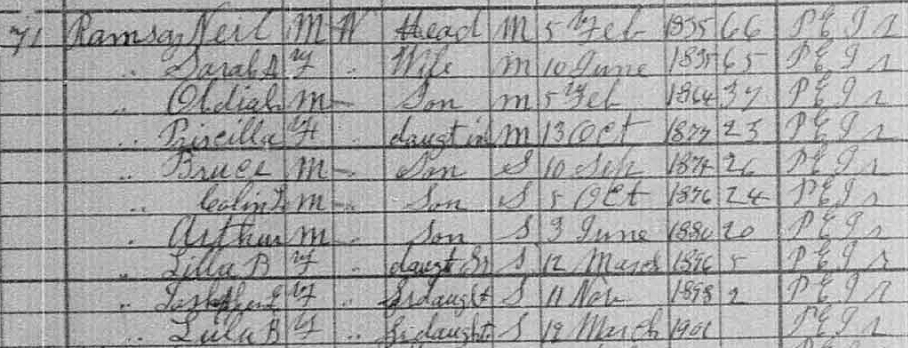 71 Ramsay Neil M W Head M 5 Feb 1835 66 P E I r
" Sarah A F " Wife m 10 June 1835 65 P E I r
" Obdiah M " Son m 5 Feb 1864 37 P E I r
" Priscilla F " daugt in M 13 Oct 1877 23 P E I r
" Bruce M " Son S 10 Sep 1874 26 P E I r
" Colin M " Son S 5 Oct 1876 24 P E I r
" Arthur M " Son S 3 June 1880 20 P E I r
" Lilla B F " daugt S 12 March 1896 5 P E I r
" F " Grdaught S 11 Nov 1898 2 P E I r
" Lulu B F " Grdaught S 12 March 1901 P E I r